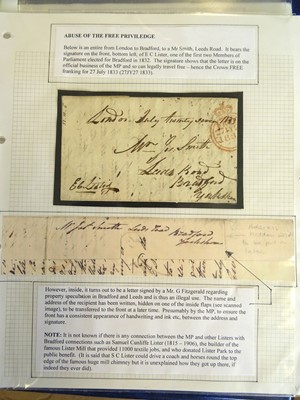 ABUSE OF THE FREE PRIVILEDGE
Below is an entire from London to Bradford, to a Mr Smith, Leeds Road. It bears the
signature on the front, bottom left, of E C Lister, one of the first two Members of
Parliament elected for Bradford in 1832. The signature shows that the letter is on the
official business of the MP and so can legally travel free – hence the Crown FREE
franking for 27 July 1833 (27JY27 1833).
London July twenty seven 1833
Mr Jos. Smith
Leeds Road
Bradford
Yorkshire
E C Lister
Mr Jos Smith Leeds Road Bradford
Yorkshire
However, inside, it turns out to be a letter signed by a Mr. G Fitzgerald regarding
property speculation in Bradford and Leeds and is thus an illegal use. The name and
address of the recipient has been written, hidden on one of the inside flaps (see scanned
image), to be transferred to the front at a later time. Presumably by the MP, to ensure the
front has a consistent appearance of handwriting and ink etc, between the address and
signature.
NOTE: It is not known if there is any connection between the MP and other Listers with
Bradford connections such as Samuel Cunliffe Lister (1815 – 1906), the builder of the
famous Lister Mill that provided 11000 textile jobs, and who donated Lister Park to the
public benefit. (It is said that S C Lister could drive a coach and horses round the top
edge of the famous huge mill chimney but it is unexplained how they got up there, if
indeed they ever did).